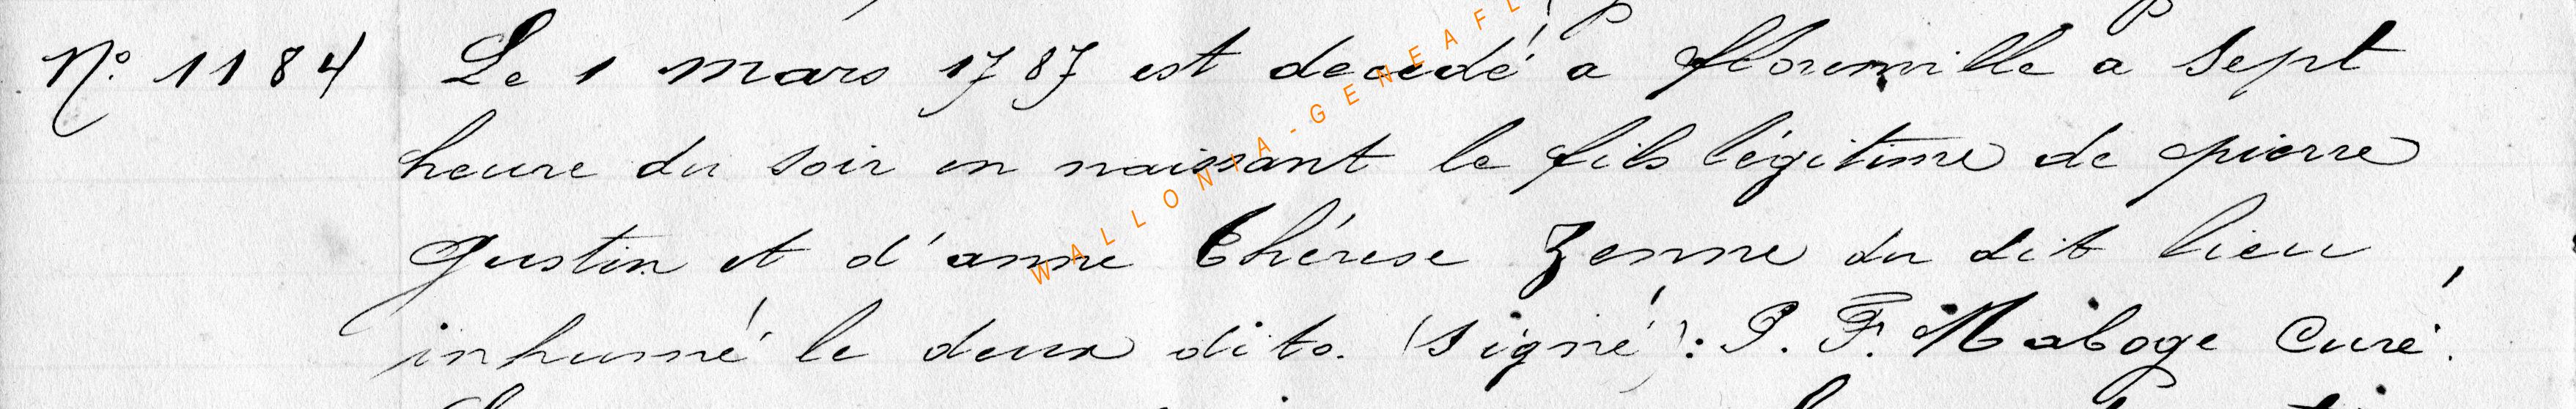 N° 1184 Le 1 mars 1787 est decedé a florenville a sept
heure du soir en naissant le fils légitime de pierre
Gustin et d'anne thérese Zenne du dit lieu,
inhumé le deux dito. (signé): P. F. Maboge Curé.
WALLONIA-GENEAFL